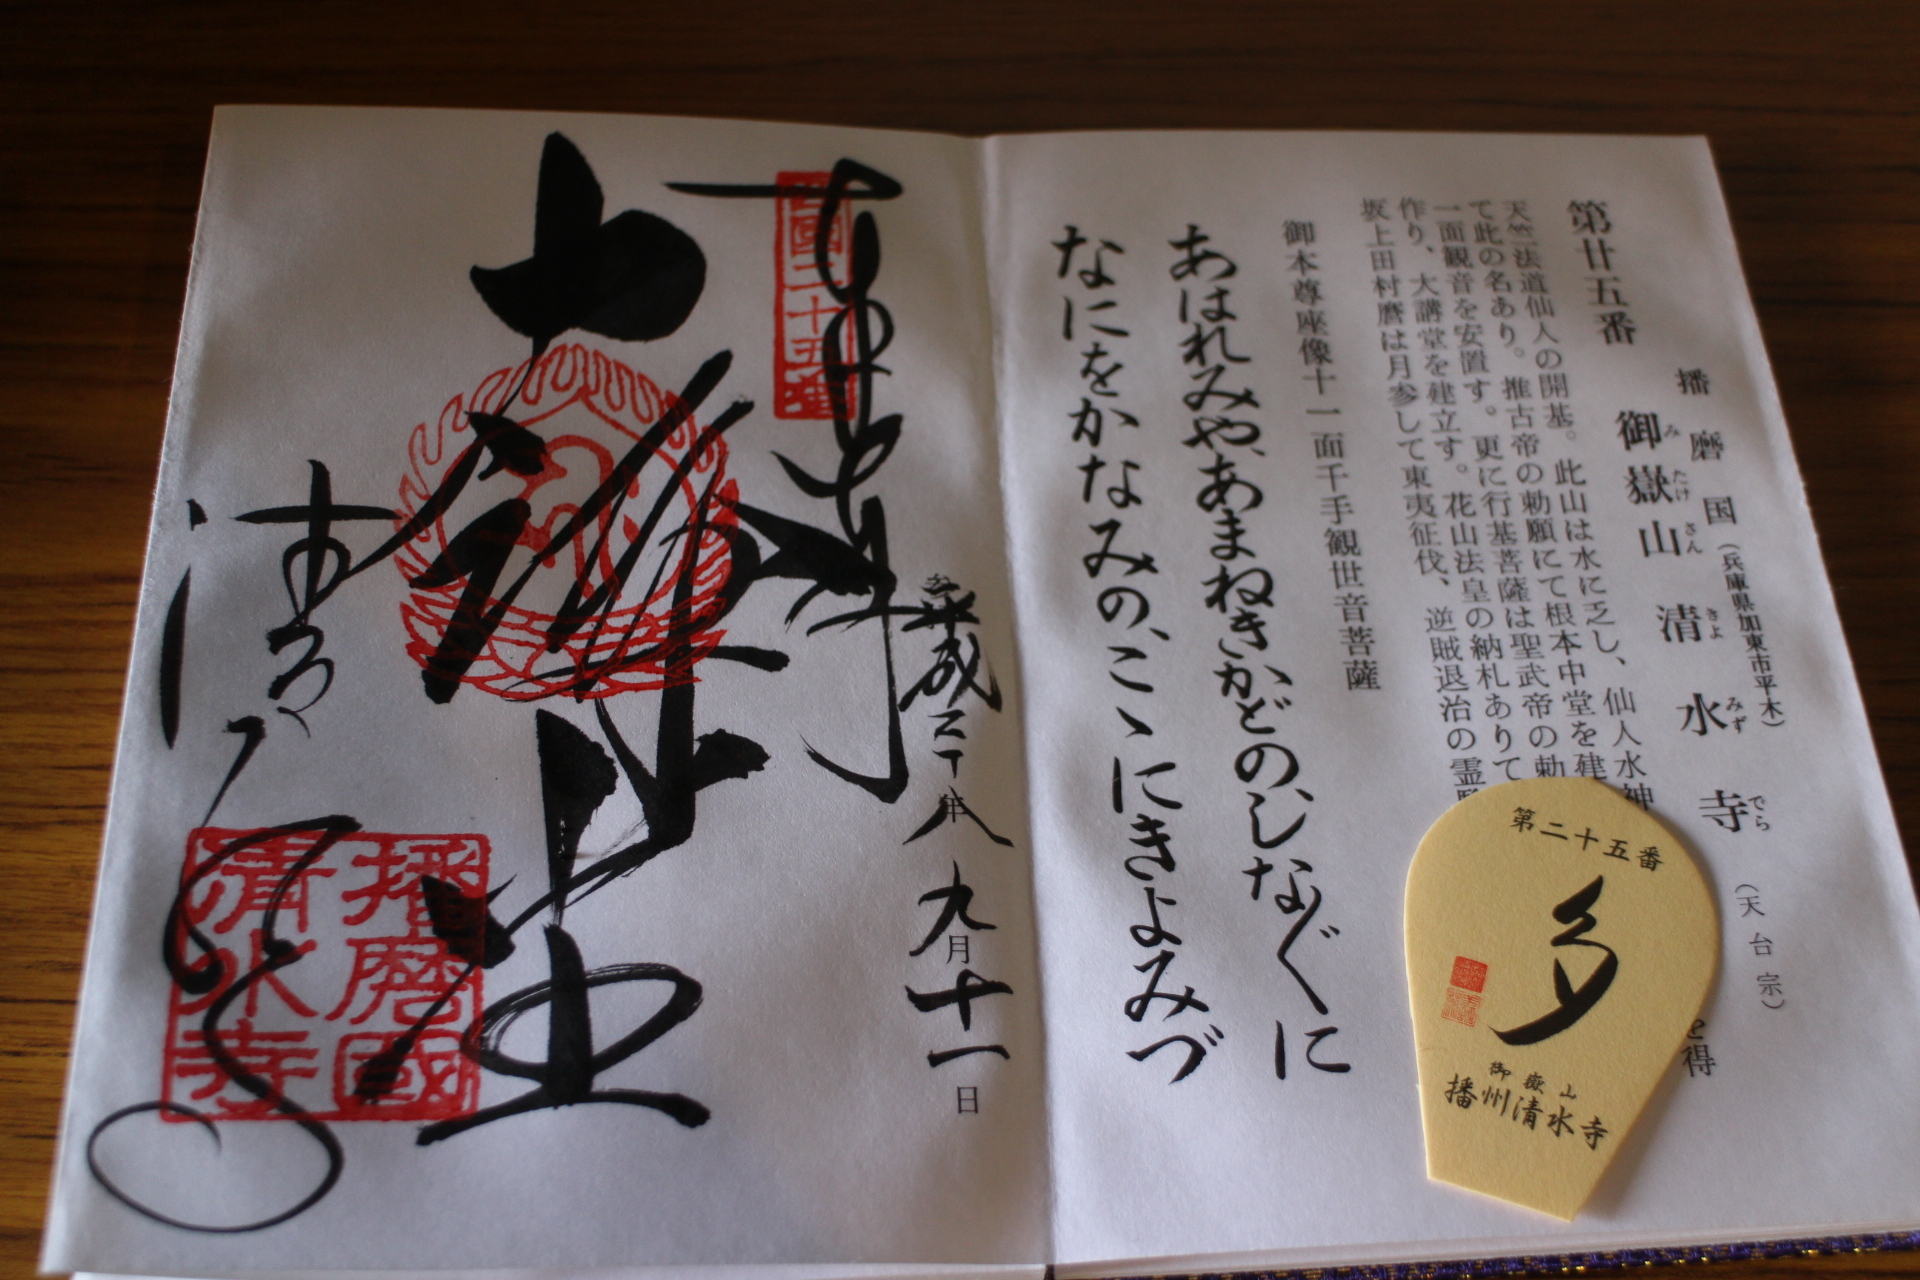 第廿五番
播磨国（兵庫県加東市平木）
御嶽山 清水寺（天台宗）
み たけ さん きよ みず でら
天竺法道仙人の開基。此山は水に乏し、仙人水神
て此の名あり。推古帝の勅願にて根本中堂を建
一面観音を安置す。更に行基菩薩は聖武帝の勅
作り、大講堂を建立す。花山法皇の納札ありて
坂上田村麿は月参して東夷征伐、逆賊退治の霊
を得
御本尊座像十一面千手観世音菩薩
あはれみや、あまねきかどの、しなぐに
なにをかなみの、こゝにきよみづ
第二十五番
多
御嶽山
播州清水寺
西國二十五番
奉拝
平成二十八年九月十一日
播磨國
清水寺